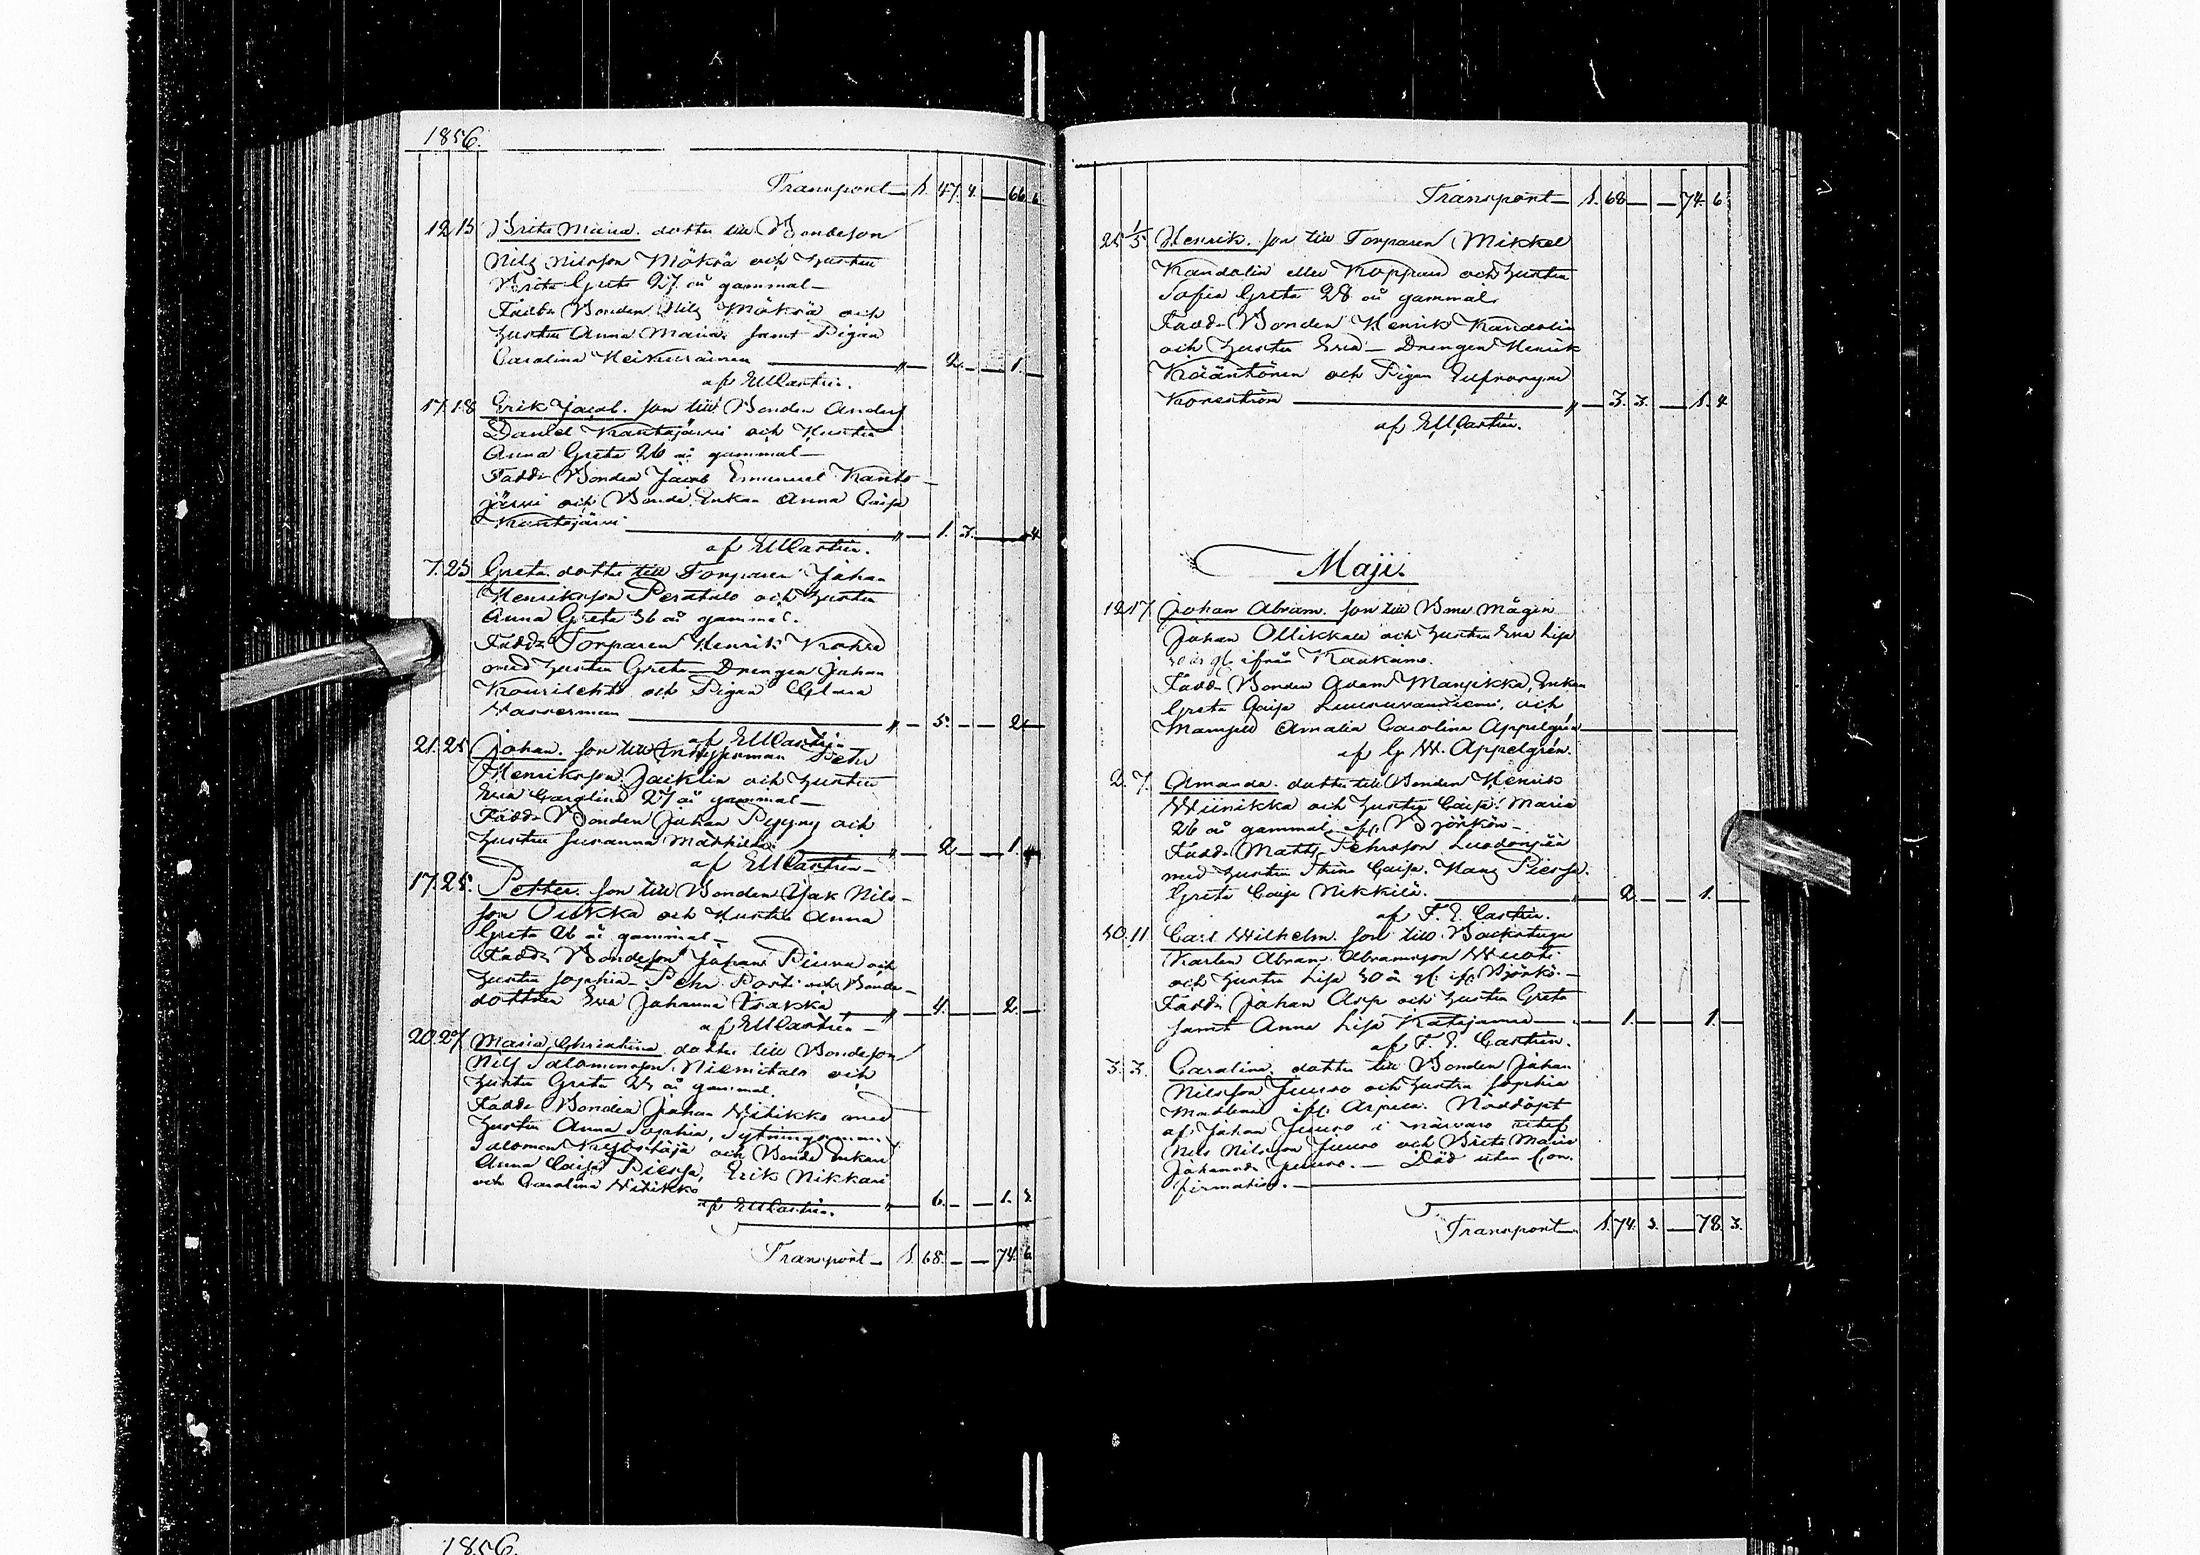 1856.
Transport — 1. 47. 4. — 66. 6.
12 13 Brita Maria. dotter till Bondeson
Nils Nilsson Mökrä och hustru
Brita Greta 27 år gammal —
Fadd: Bonden Nils Mökrä och
hustru Anna Maria. samt Pigan
Carolina Heikurainen — " — 2. — — 1. —
af EMCastrén.
17. 18 Erik Jacob. son till Bonden Anders
Daniel Kantojärvi och Hustru
Anna Greta 26 år gammal —
Fadd: Bonden Jacob Emanuel Kanto-
järvi och Bonde Enkan Anna Caisa
Kantojärvi — " — 1. 3. — — 4
af EMCastrén.
7. 23 Greta. dotter till Torparen Johan
Henriksson Perätalo och hustru
Anna Greta 36 år gammal.
Fadd: Torparen Henrik
med hustru Greta — Drengen Johan
Kourilehto och Pigan
Wasserman — " — 5. — — 2
af EMCastrén
21. 25 Johan. son till Inhysesman Petter
Henriksson Jaiklin och hustru
Eva Carolina 27 år gammal —
Fadd: Bonden Johan och
hustru Susanna — " — 2 — — 1.
af EMCastrén —
17. 25. Petter. son till Bonden Isak Nils-
son Oukka och Hustru Anna
Greta 26 år gammal —
Fadd: Bondeson Johan och
hustru Sophia — Pehr Porti och Bonde-
dottren Eva Johanna — " — 4. — — 2. —
af EMCastrén —
20. 27 Maria Christina dotter till Bondeson
Nils Salomonsson Niemitalo och
hustru Greta år gammal.
Fadd: Bonden Johan Witikko med
hustru Anna Sophia, Sytningsman
Salomon och Bonde Enkan
Anna Caisa Pieksa, Erik Nikkari
och Carolina Witikko — " — 6. — — 1. 2.
af EMCastrén.
Transport — 1. 68. — — 74. 6
Transport — 1. 68 — — 74. 6.
25 1/5 Henrik. son till Torparen Mikkel
Kandolin eller och hustru
Sofia Greta 28 år gammal.
Fadd: Bonden Henrik Kandolin
och hustru Eva — Drengen Henrik
Kääntönen och Pigan Eufrosyne
— " — 3. 3. — 1. 4.
af EMCastrén.
Maji.
12 17. Johan Abram. son till Bonde Mågen
Johan Ollikkala och hustru Eva Lisa
30 år gl. ifrån Kaakamo.
Fadd: Bonden Adam Mansikka, Enkan
Greta Caisa och
Mamsell Amalia Carolina Appelgrén
af G. W. Appelgrén.
2. 7. Amanda. dotter till Bonden Henrik
Wiinikka och hustru Caisa Maria
26 år gammal ifr. Björkön —
Fadd: Matts Pehrsson
med hustru Stina Caisa. Hans Pieksa.
Greta Caisa Nikkilä. — 2 — — 1. —
af F. E. Castrén.
30. 11 Carl Wilhelm. son till Backstugu
Karlen Abram Abramsson Wuoti
och hustru Lisa 30 år gl. ifr. Björkö —
Fadd: Johan Asp och hustru Greta
samt Anna Lisa Katajamaa — 1. — — 1. —
af F. E. Castrén.
3. 3. Carolina. dotter till Bonden Johan
Nilsson Juuso och hustru Sophia
Madlena ifr. Arpela. Nöddöpt
af Johan Juuso i närvaro utaf
Nils Nilsson Juuso och Brita Maria
Johansd: Juuso. — Död utan Con-
firmation. —
Transport — 1. 74. 3. — 78. 3.
1856.